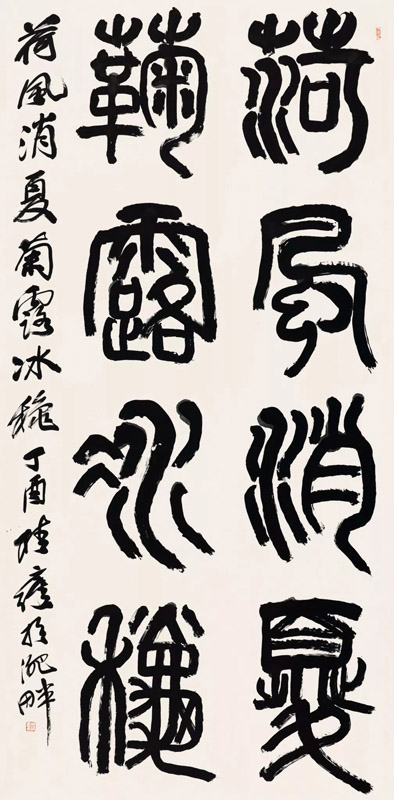 荷風消夏
鞠露冰龝
荷風消夏菊露冰龝丁酉於畔